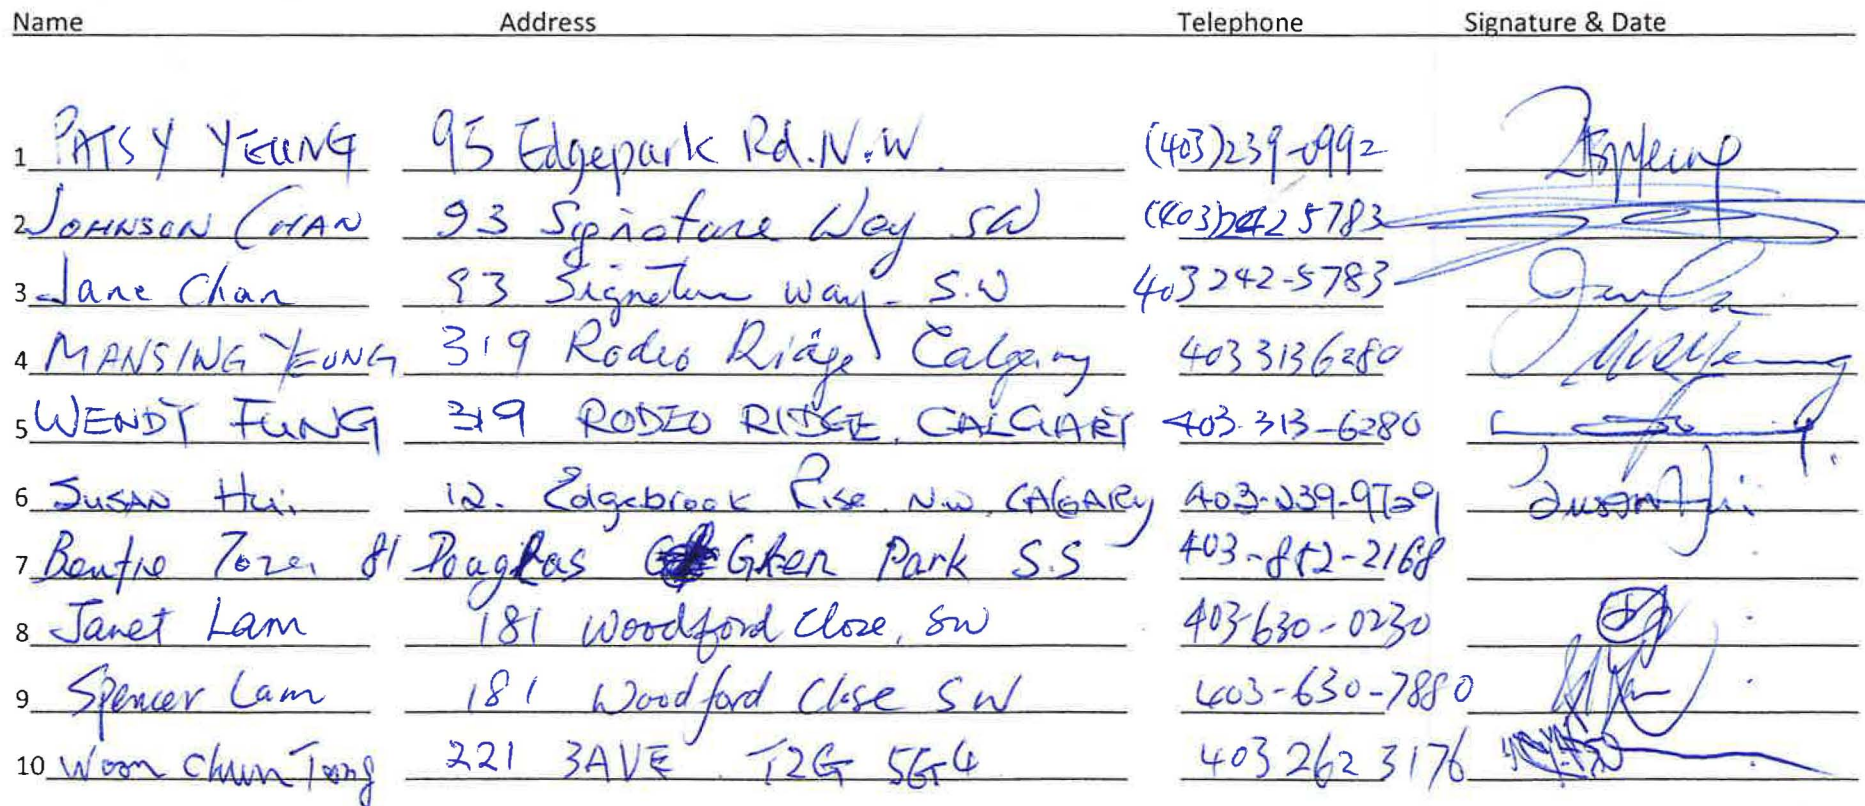 Name Address Telephone Signature & Date
1 PATSY YEUNG 95 Edgepark Rd. N.W. (403)239-0992
2 JOHNSON CHAN 93 Signature Way SW (403)2425783
3 Jane Chan 93 Signature way - S.W 403 242-5783
4 MANSING YEUNG 319 Rodeo Ridge Calgary 403 313 6280
5 WENDY FUNG 319 RODEO RIDGE, CALGARY 403-313-6280
6 SUSAN Hui 12. Edgebrook Rise N.W. CALGARY 403-239-9729 Susan Hui
7 81 Douglas Glen Park S.S 403-852-2168
8 Janet Lam 181 Woodford Close, SW 403-630-0230
9 Spencer Lam 181 Woodford Close SW 403-630-7880
10 Woon Chun Tong 221 3AVE T2G 5G4 403 262 3176